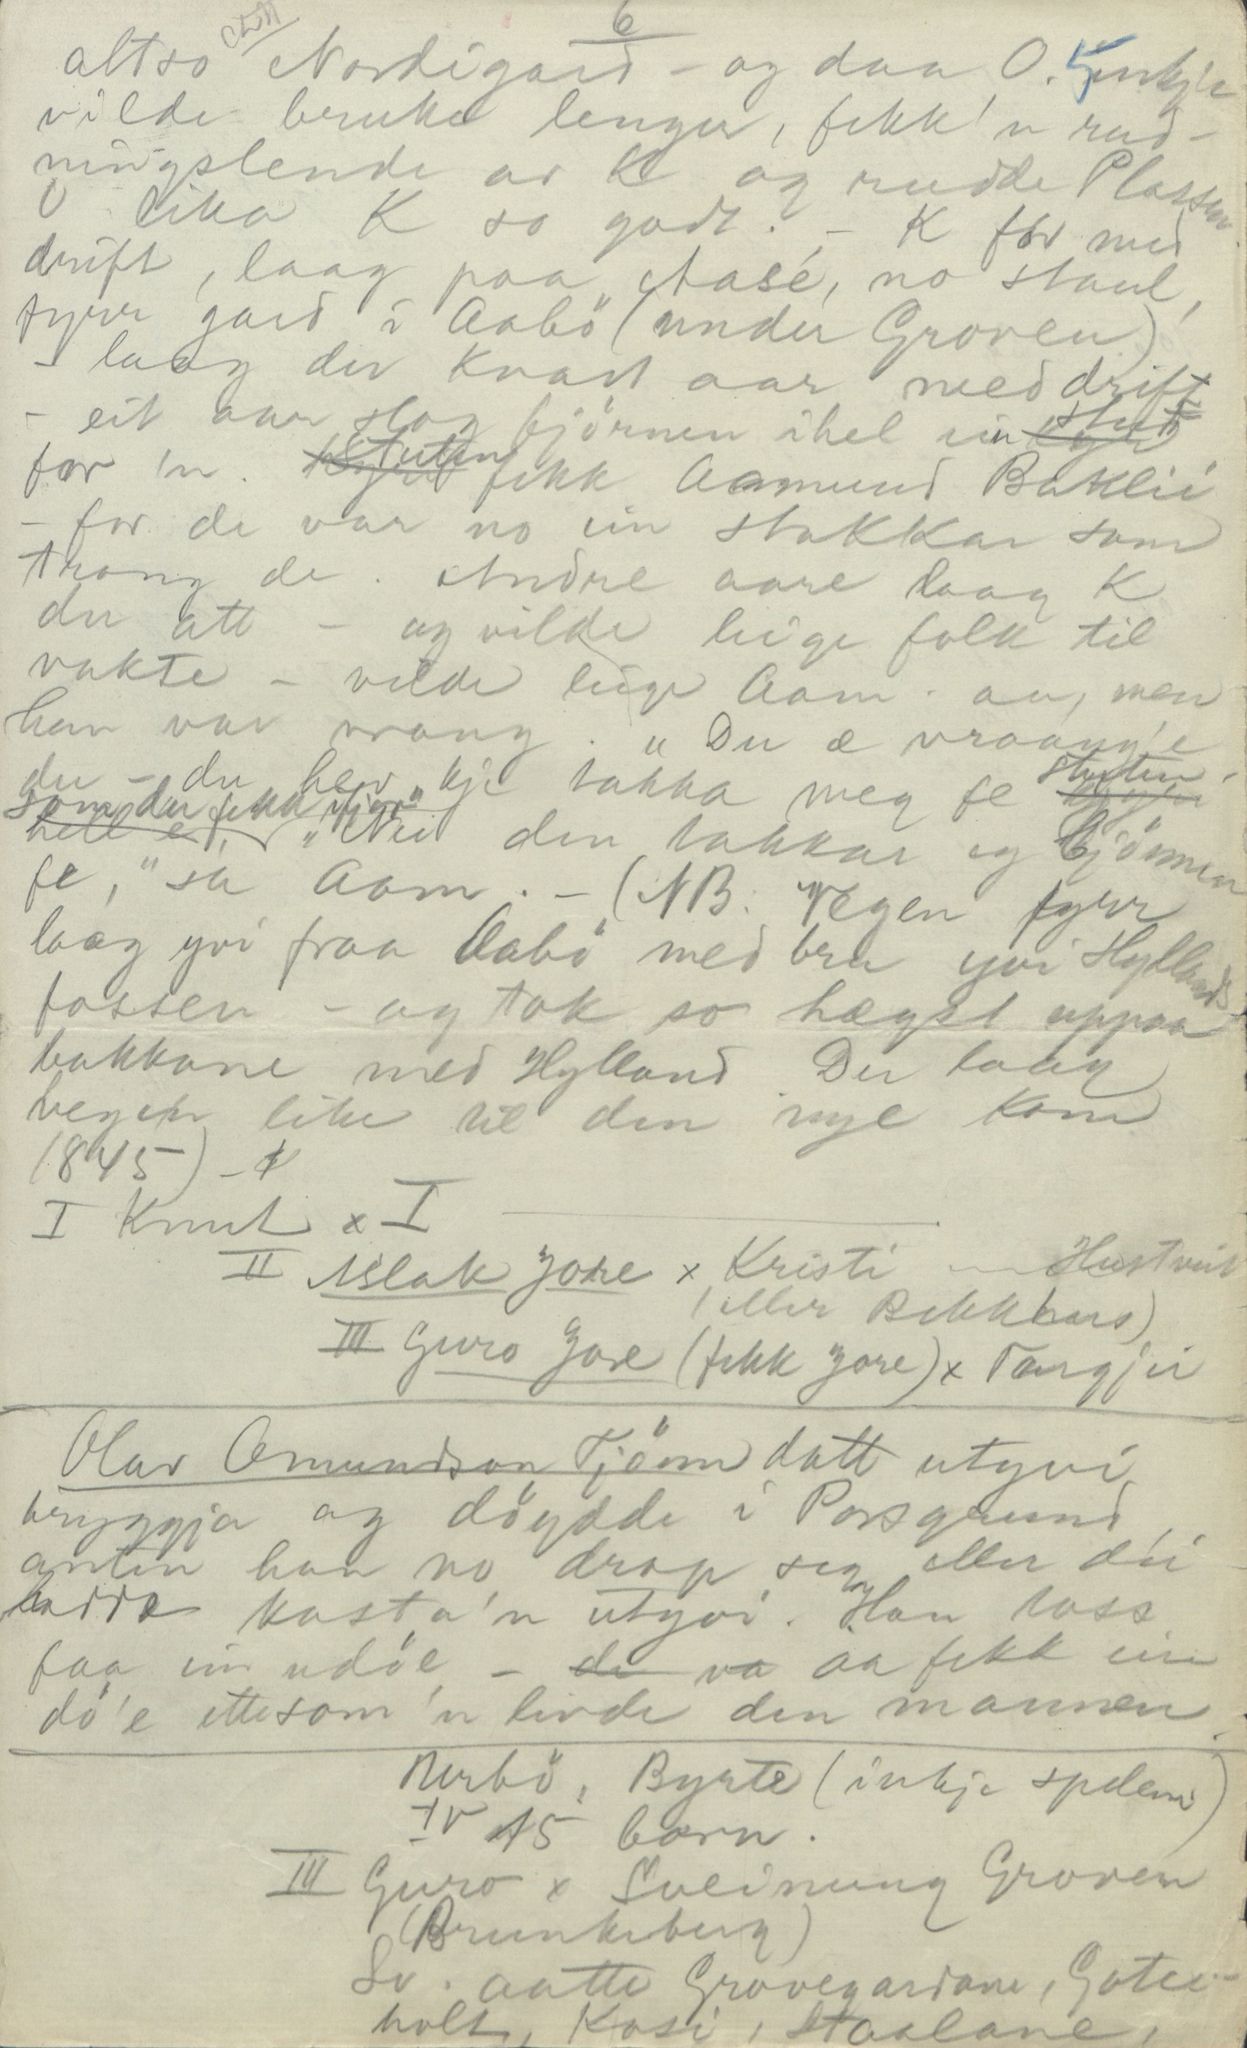 6
altso Nordigard - og daa O. 5 inkje
vilde bruka lenger, fekk'n rud-
ningslende av K og rudde Plassen.
O lika K so godt. - K for med
drift, laag paa Aasé, no staul,
fyrr gard i Aabö (under Groven)
- laag der kvart aar med drift
- eit aar slog björnen ihel ein stut
for 'n. Stuten fekk Aamund Baklii
- for de var no ein stakkar som
trong de. Andre aare laag K
der att - og vilde leige folk til
vakte - vilde leige Aam. au, men
han var vrang. "Du æ vraang'e
du - du hev kje takka meg fe stuten
som du fekk ifjor" "Nei den takkar eg björnen
fe," sa Aam. - (NB. Vegen fyrr
laag yvi fraa Aabö med bru yvi Hyllands-
fossen - og tok so hægst uppaa
bakkane med Hylland. Der laag
vegen like til den nye kom
1845) -
I Knut x I
II Aslak Jore x Kristi Hustveit
(eller Bekkhus)
III Guro Jore (fekk Jore) x Targjei
Olav Amundson Tjönn datt utyvi
bryggja og döydde i Porsgrund,
anten han no drap seg eller dei
hadde kasta'n utyvi. Han loss
faa ein udöe - de va aa fekk ein
dö'e ettesom 'n livde den mannen.
Nerbö, Byrte (inkje spelem)
IV 15 born.
III Guro x Sveinung Groven
(Brunkeberg)
Sv. aatte Grovegardane, Gotei-
holt, Kosi, Staalane,